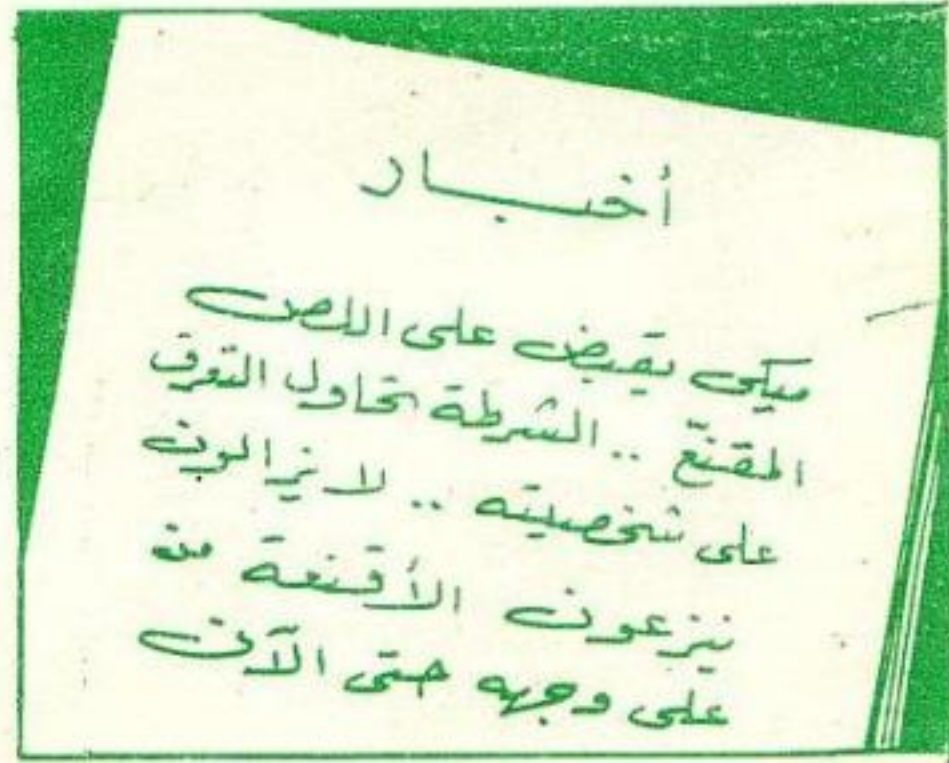 أخبار
ميكى يقبض على اللص
المقنّع .. الشرطة تحاول التعرف
على شخصيته .. لا يزالون
ينزعون الأقنعة من
على وجهه حتى الآن